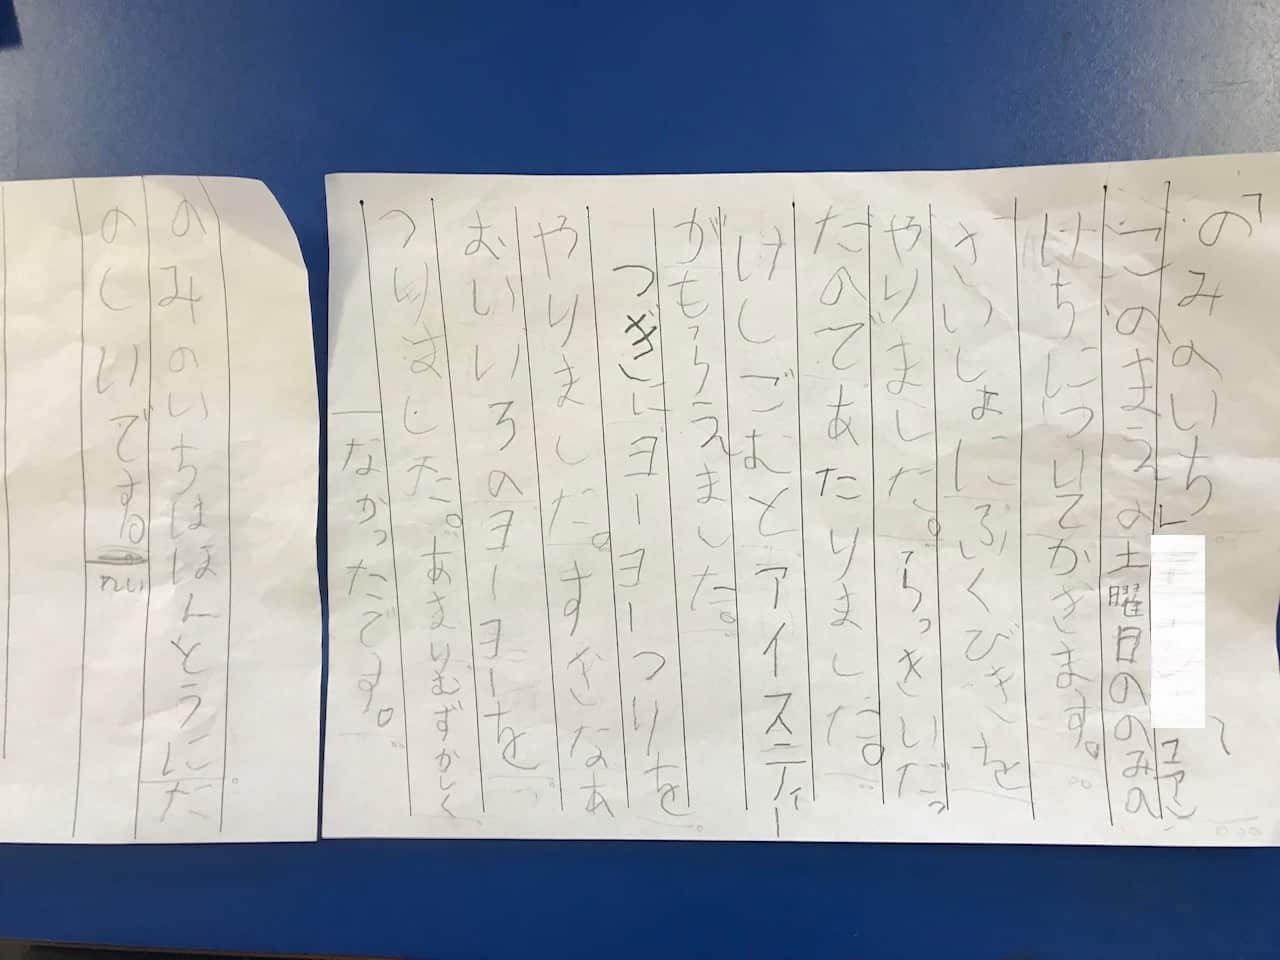 「のみのいち」
ユアン
このまえの土曜日ののみの
けちについてかきます。
さいしょにふくびきを
やりました。らっきいだっ
たのであたりました。
けしごむとアイスティー
がもらえました。
つぎにヨーヨーつりを
やりました。すきなあ
おいいろのヨーヨーを
つりました。あまりむずかしく
なかったです。
のみのいちはほんとうにた
のしいですね